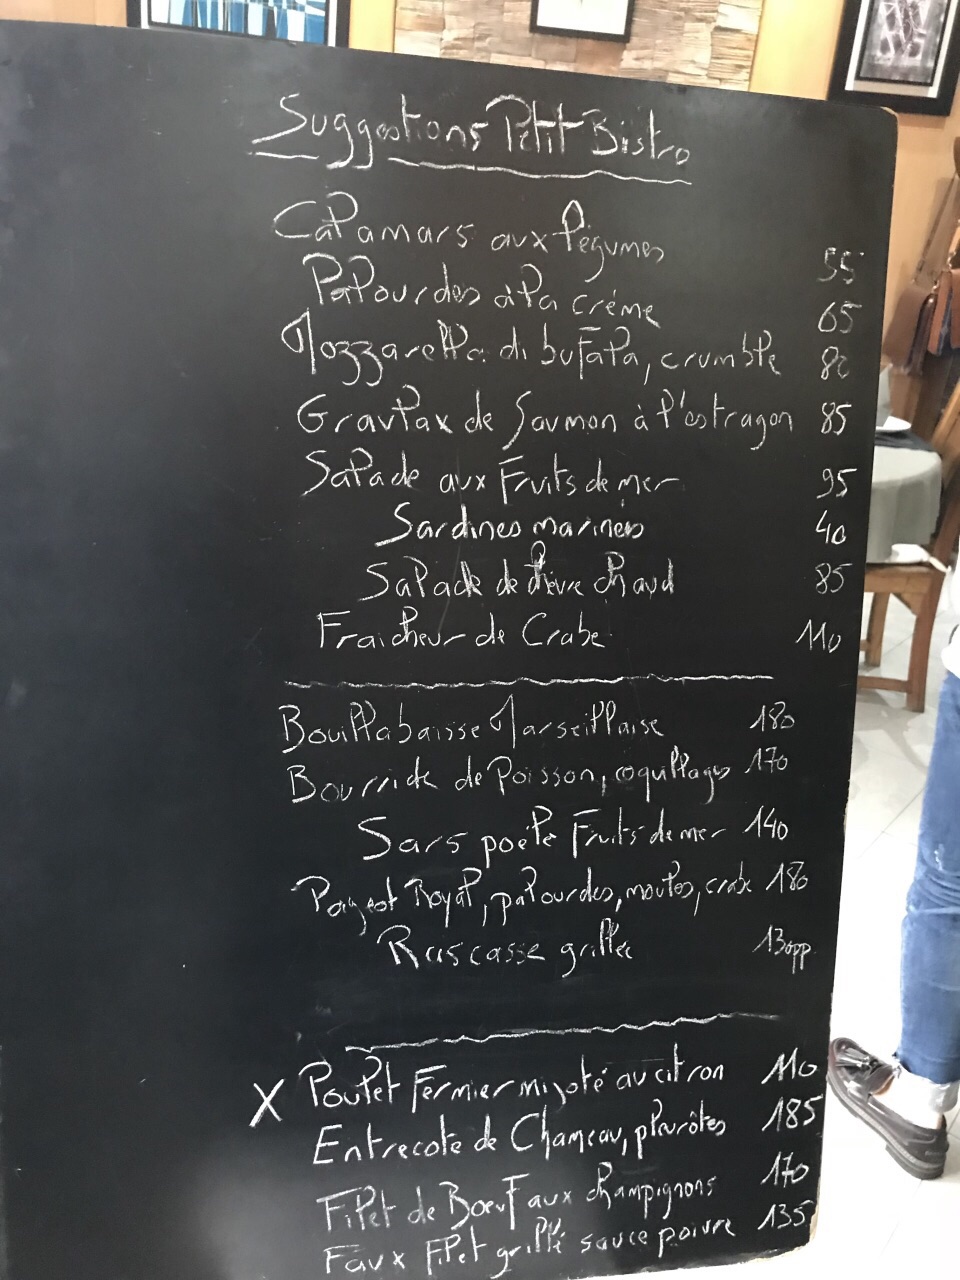 Suggestions Petit Bistro
Calamars aux légumes 55
Palourdes à la crème 65
Mozzarella di bufala, crumble 80
Gravlax de Saumon à l'estragon 85
Salade aux Fruits de mer 95
Sardines marinées 40
Salade de chèvre chaud 85
Fraicheur de Crabe 110
Bouillabaisse Marseillaise 180
Bourride de Poisson, coquillages 170
Sars poêlé Fruits de mer 140
Pageot Royal, palourdes, moules, crabe 180
Rascasse grillée 130pp
X Poulet Fermier mijoté au citron 110
Entrecote de Chameau, pleurôtes 185
Filet de Bœuf aux champignons 170
Faux Filet grillé sauce poivre 135